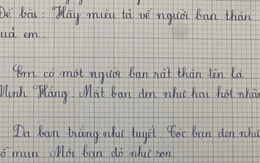 Đề bài: Hãy miêu tả về người bạn thân
của em.
Em có một người bạn rất thân tên là
Minh Hằng. Mắt bạn đen như hai hột nhãn
Da bạn trắng như tuyết Tóc bạn đen như
gỗ mun. Môi bạn đỏ như son